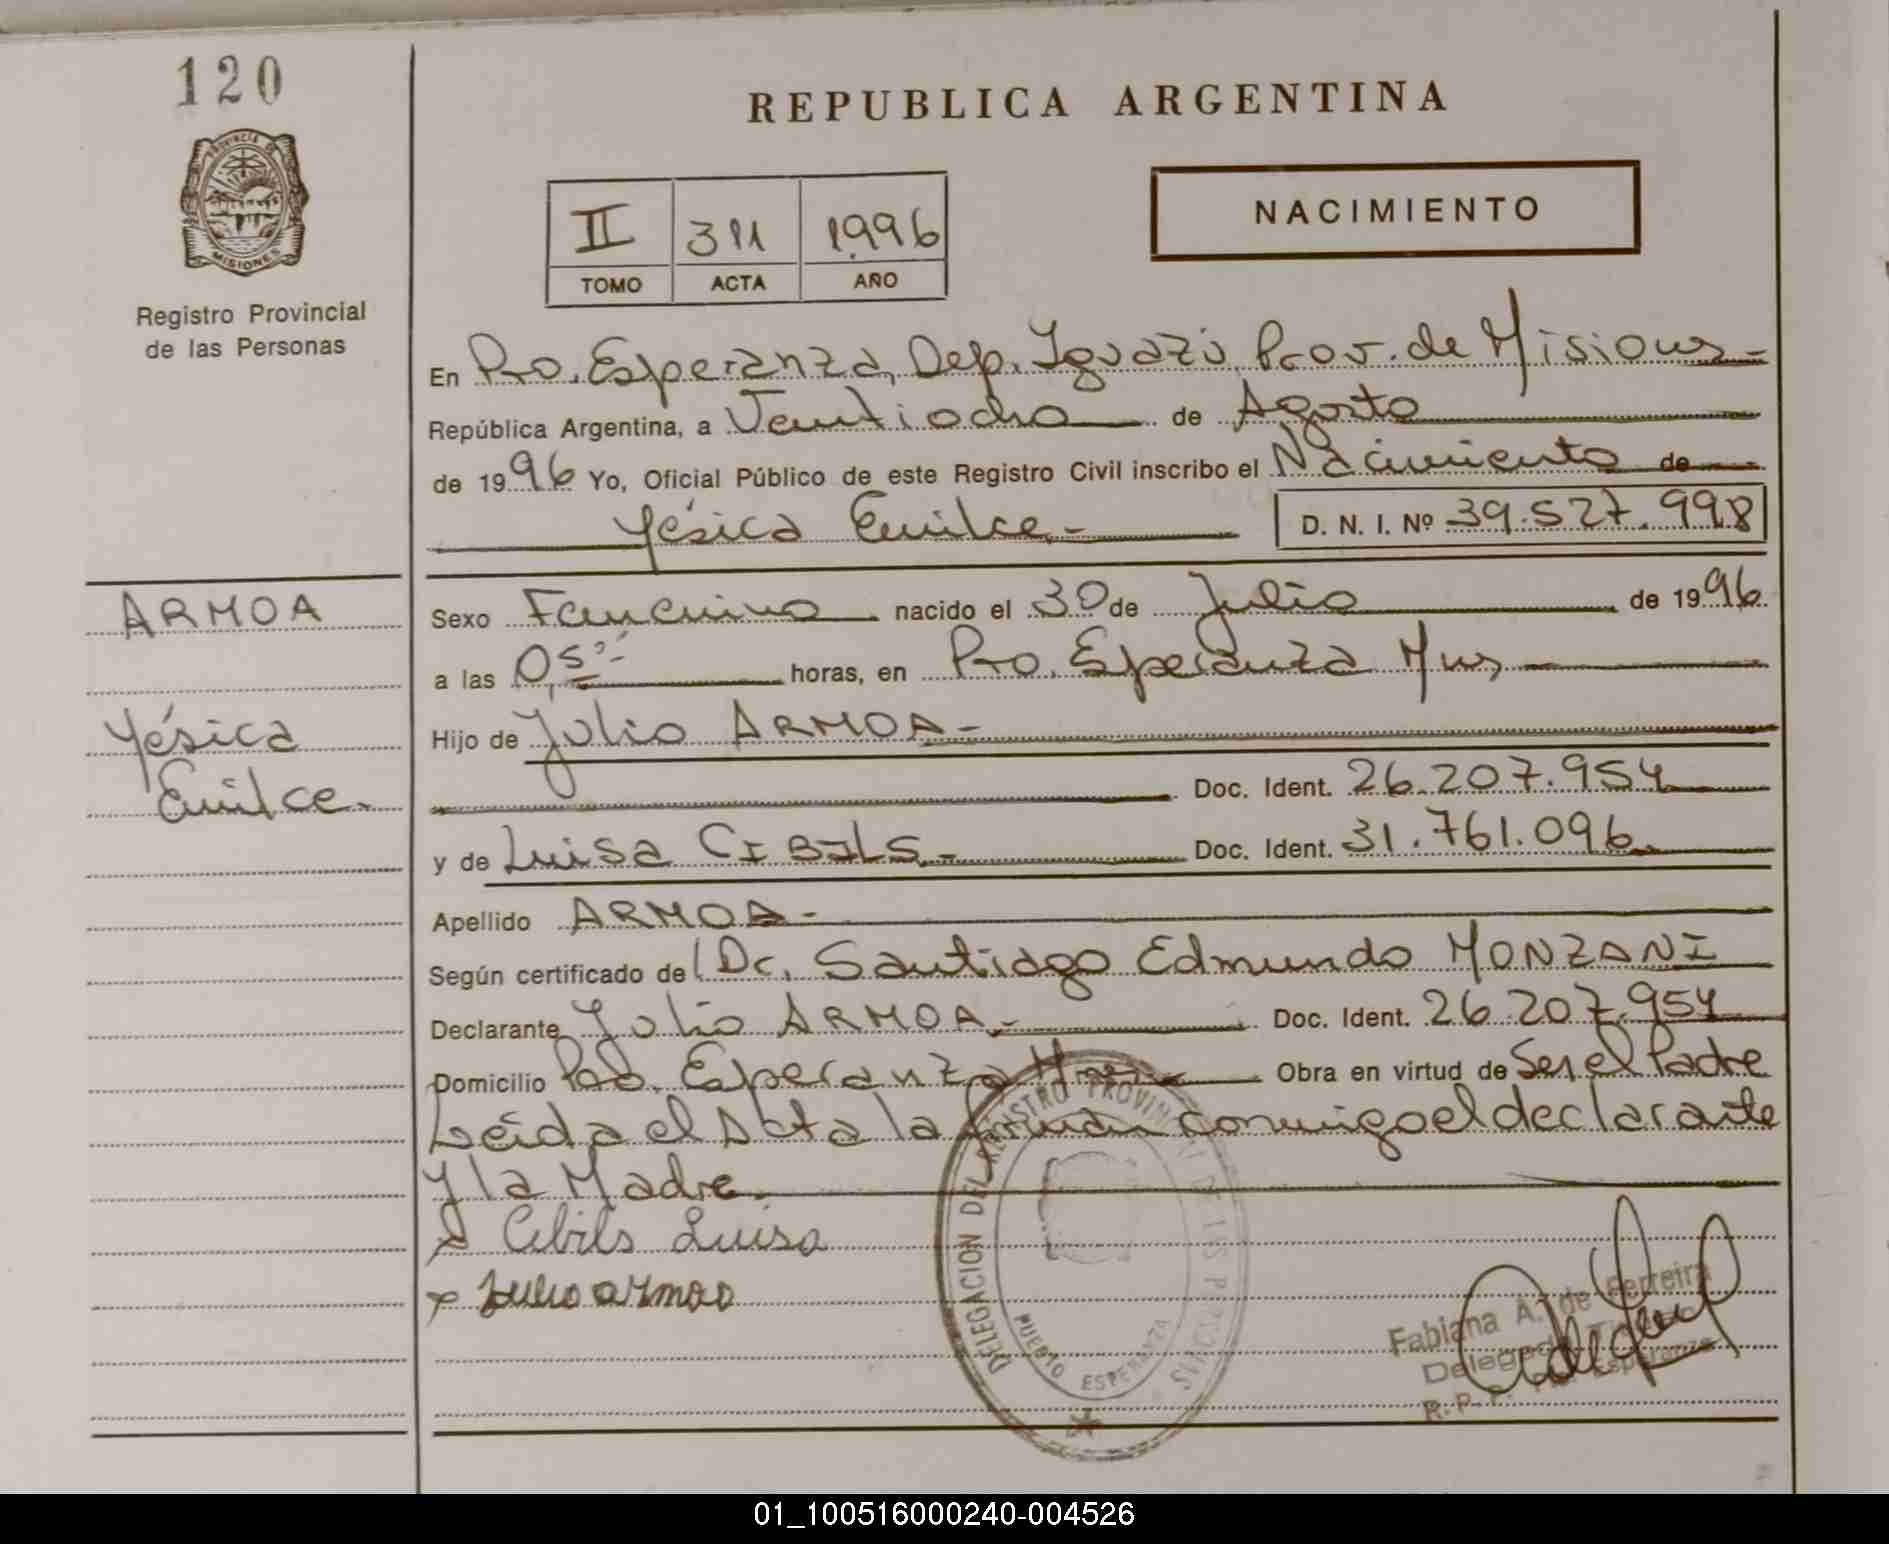 120
PROVINCIA DE
MISIONES
Registro Provincial
de las Personas
REPUBLICA ARGENTINA
II 311 1996
TOMO ACTA AÑO
NACIMIENTO
En Pto. Esperanza, Dep. Iguazú Prov. de Misiones-
República Argentina, a Ventiocho de Agosto
de 1996 Yo, Oficial Público de este Registro Civil inscribo el Nacimiento de
Yésica Emilce.- D. N. I. Nº 39.527.998
ARMOA
Yésica
Emilce.-
Sexo Femenino nacido el 30 de Julio de 1996
a las 05 horas, en Pto. Esperanza Mnes
Hijo de Julio ARMOA-
Doc. Ident. 26.207.954
y de Luisa CIBILS.- Doc. Ident. 31.761.096.
Apellido ARMOA-
Según certificado de Dr. Santiago Edmundo MONZANI
Declarante Julio ARMOA.- Doc. Ident. 26.207.954
Domicilio Pto. Esperanza Obra en virtud de Ser el Padre
Leída el Acta la firman conmigo el declarante
y la Madre.
x Cibils Luisa
x Julio armoa
DELEGACION DEL REGISTRO PROVINCIAL DE LAS PERSONAS
PUERTO ESPERANZA
Fabiana A. de Ferreira
Delegada
R. P. P. Esperanza
01_100516000240-004526